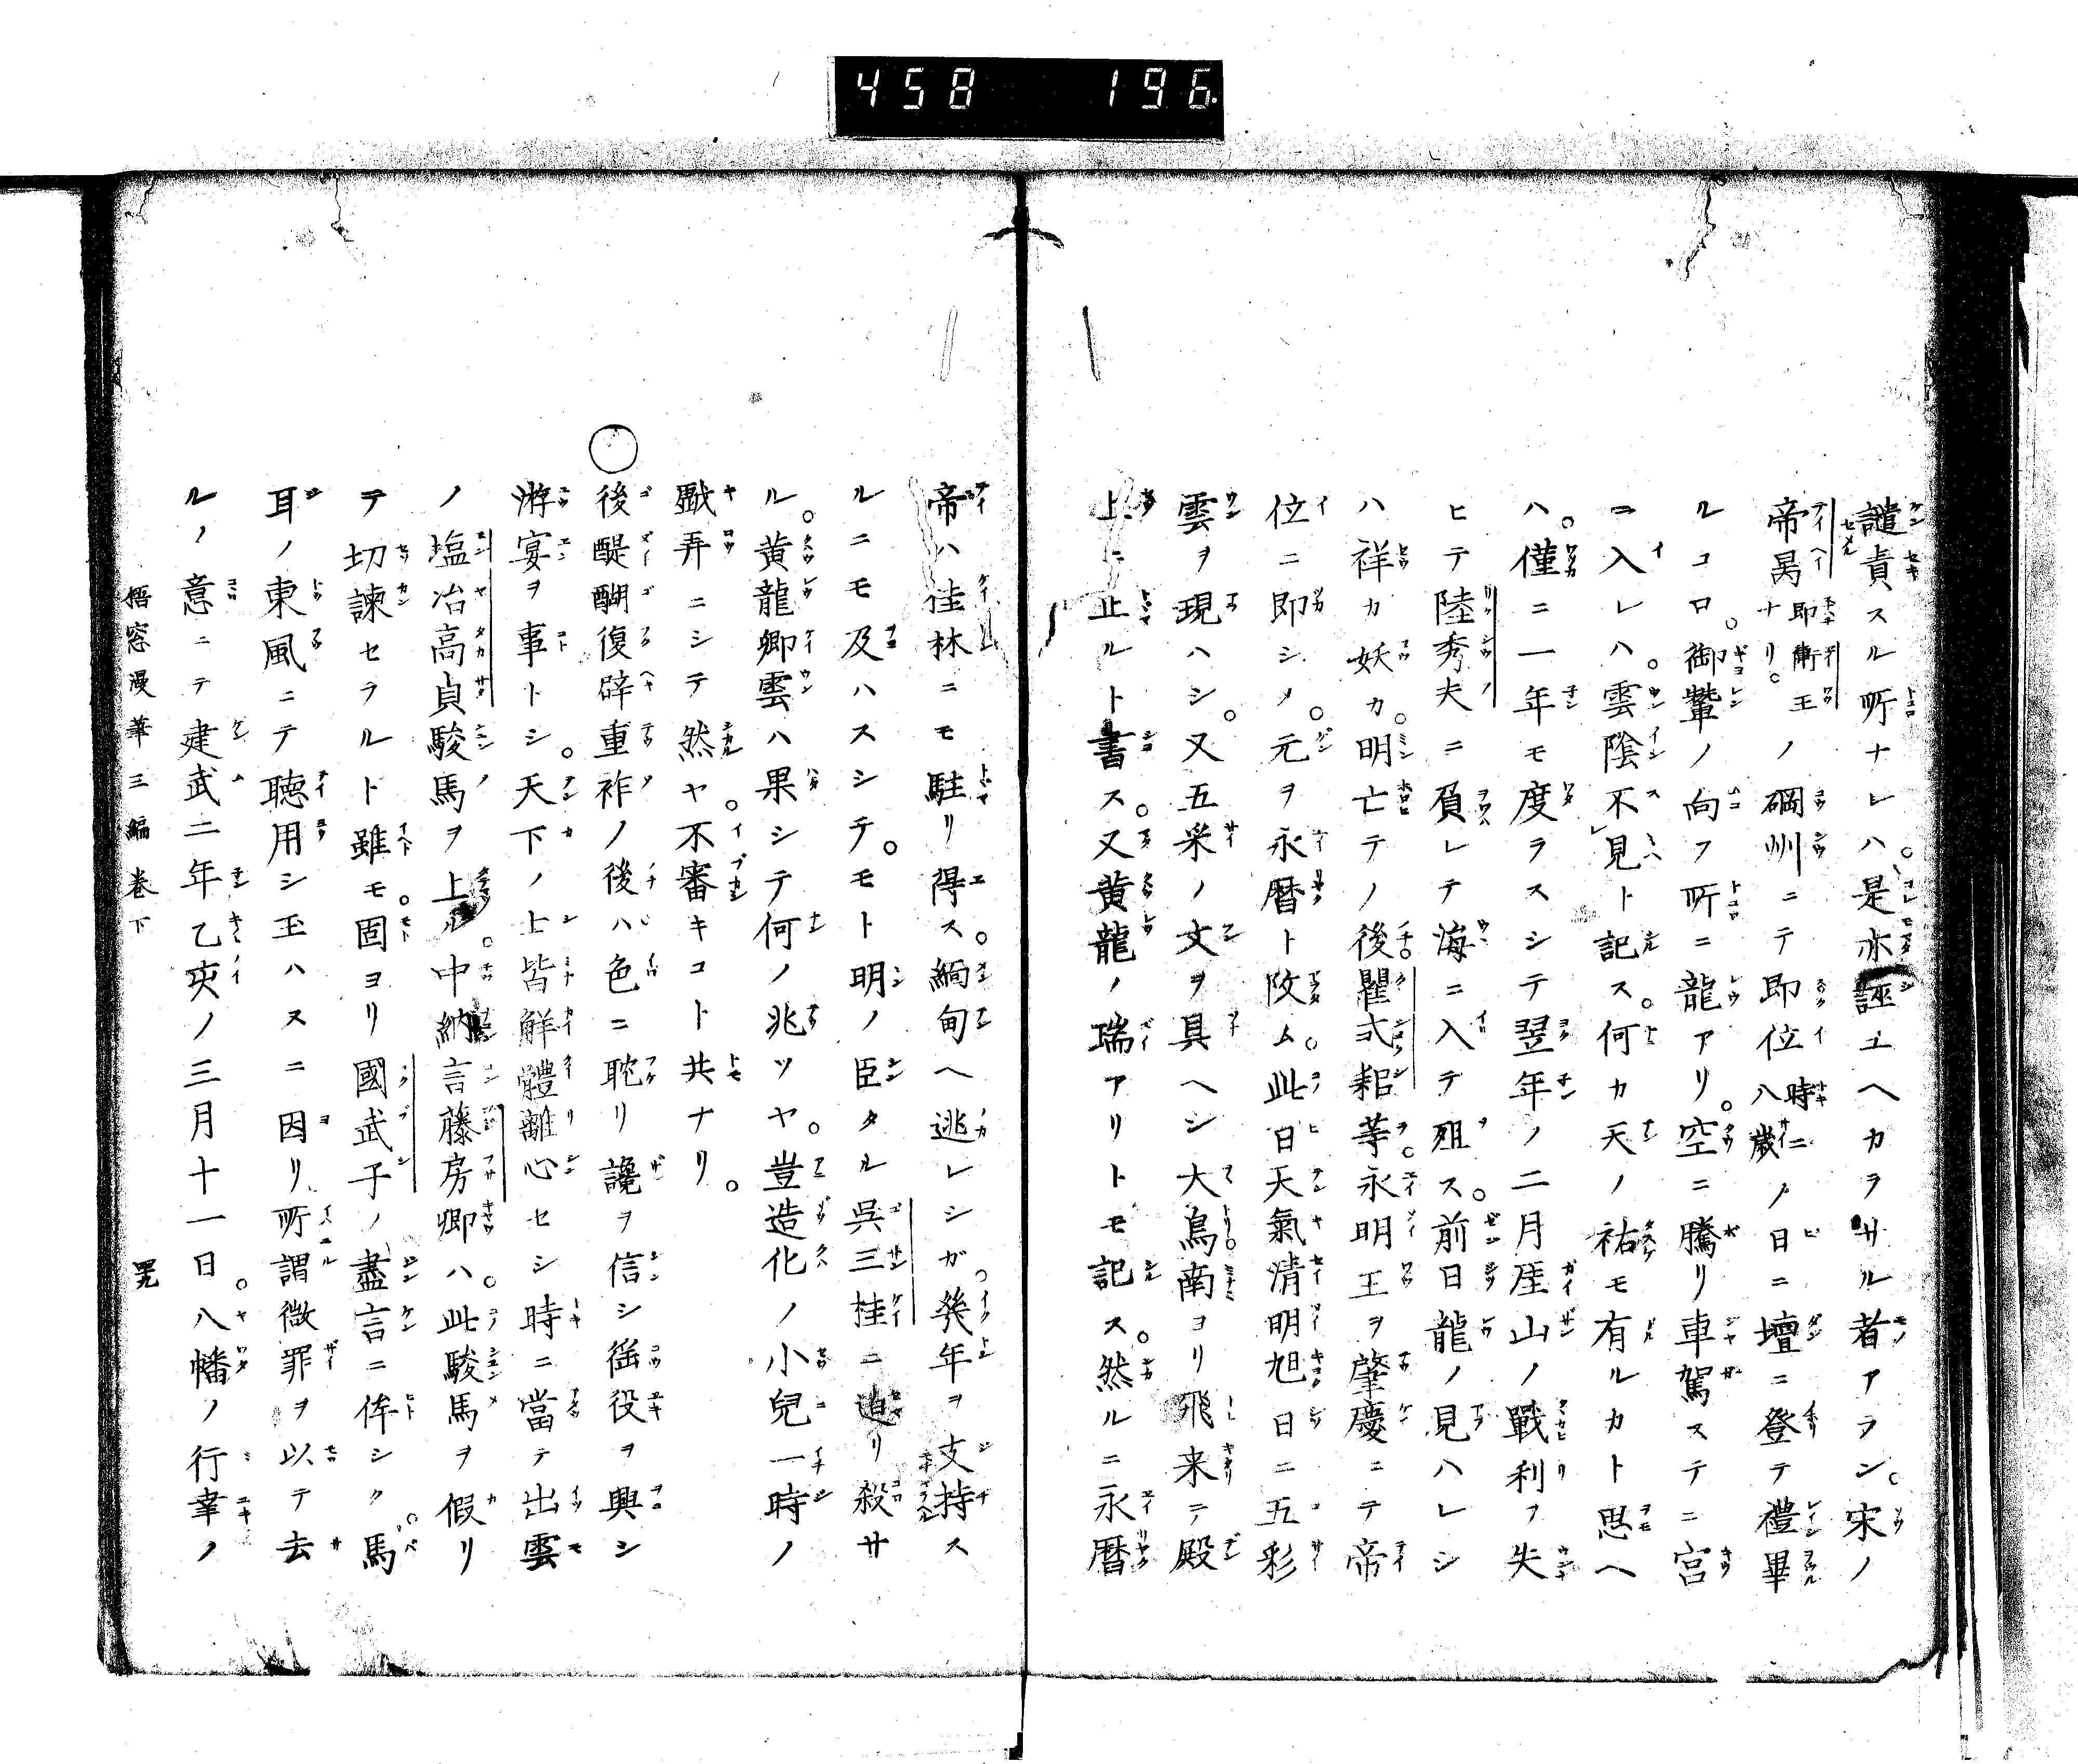 458 196.
譴責スル所ナレハ。是亦誣ユヘカラサル者アラン。宋ノ
帝昺即衛王ナリ。ノ碙州ニテ即位時ニ八歳ノ日ニ壇ニ登テ禮畢
ルコロ。御輦ノ向フ所ニ龍アリ。空ニ騰リ車駕ステニ宮
ニ入レハ。雲陰不見ト記ス。何カ天ノ祐モ有ルカト思ヘ
ハ。僅ニ一年モ度ラスシテ翌年ノ二月厓山ノ戰利ヲ失
ヒテ陸秀夫ニ負レテ海ニ入テ殂ス。前日龍ノ見ハレシ
ハ祥カ妖カ。明亡テノ後。瞿式耜等。永明王ヲ肇慶ニテ帝
位ニ即シメ。元ヲ永暦ト改ム。此日天氣清明旭日ニ五彩
雲ヲ現ハシ。又五采ノ文ヲ具ヘシ大鳥南ヨリ飛来テ殿
上ニ止ルト書ス。又黄龍ノ瑞アリトモ記ス。然ルニ永暦
帝ハ桂林ニモ駐リ得ス。緬甸ヘ逃レシガ。幾年ヲ支持ス
ルニモ及ハスシテ。モト明ノ臣タル呉三桂ニ迫リ殺サ
ル。黄龍卿雲ハ果シテ何ノ兆ツヤ。豈造化ノ小兒一時ノ
戲弄ニシテ然ヤ。不審キコト共ナリ。
○後醍醐復辟重祚ノ後ハ色ニ耽リ讒ヲ信シ徭役ヲ興シ
游宴ヲ事トシ。天下ノ士皆解體離心セシ時ニ當テ出雲
ノ塩冶高貞駿馬ヲ上ル。中納言藤房卿ハ。此駿馬ヲ假リ
テ切諫セラルト雖モ。固ヨリ國武子ノ盡言ニ侔シク。馬
耳ノ東風ニテ聴用シ玉ハスニ因リ所謂微罪ヲ以テ去
ルノ意ニテ建武二年乙亥ノ三月十一日。八幡ノ行幸ノ
梧窓漫筆三編巻下 四九